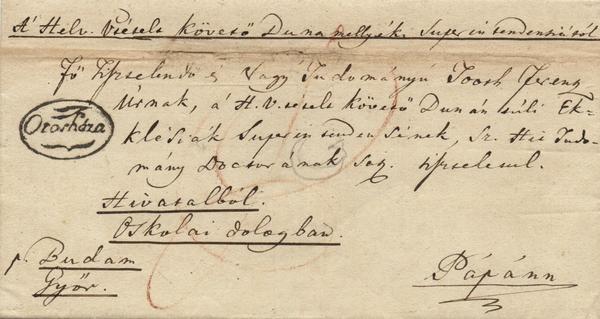 A' Helv. Vséselt követő Duna mellyéki Superintendentiától
Fő tiszteletű és Nagy Tudományú Tooth Ferenz
Úrnak, a' H. Vséselt követő Dunán túli Ek-
klésiák Superintendensének, Sz. Hit Tudo-
mány Doctorának sat. tisztelettel.
Orosháza
Hivatalból.
Oskolai dologban.
p. Budam
Győr.
Pápánn